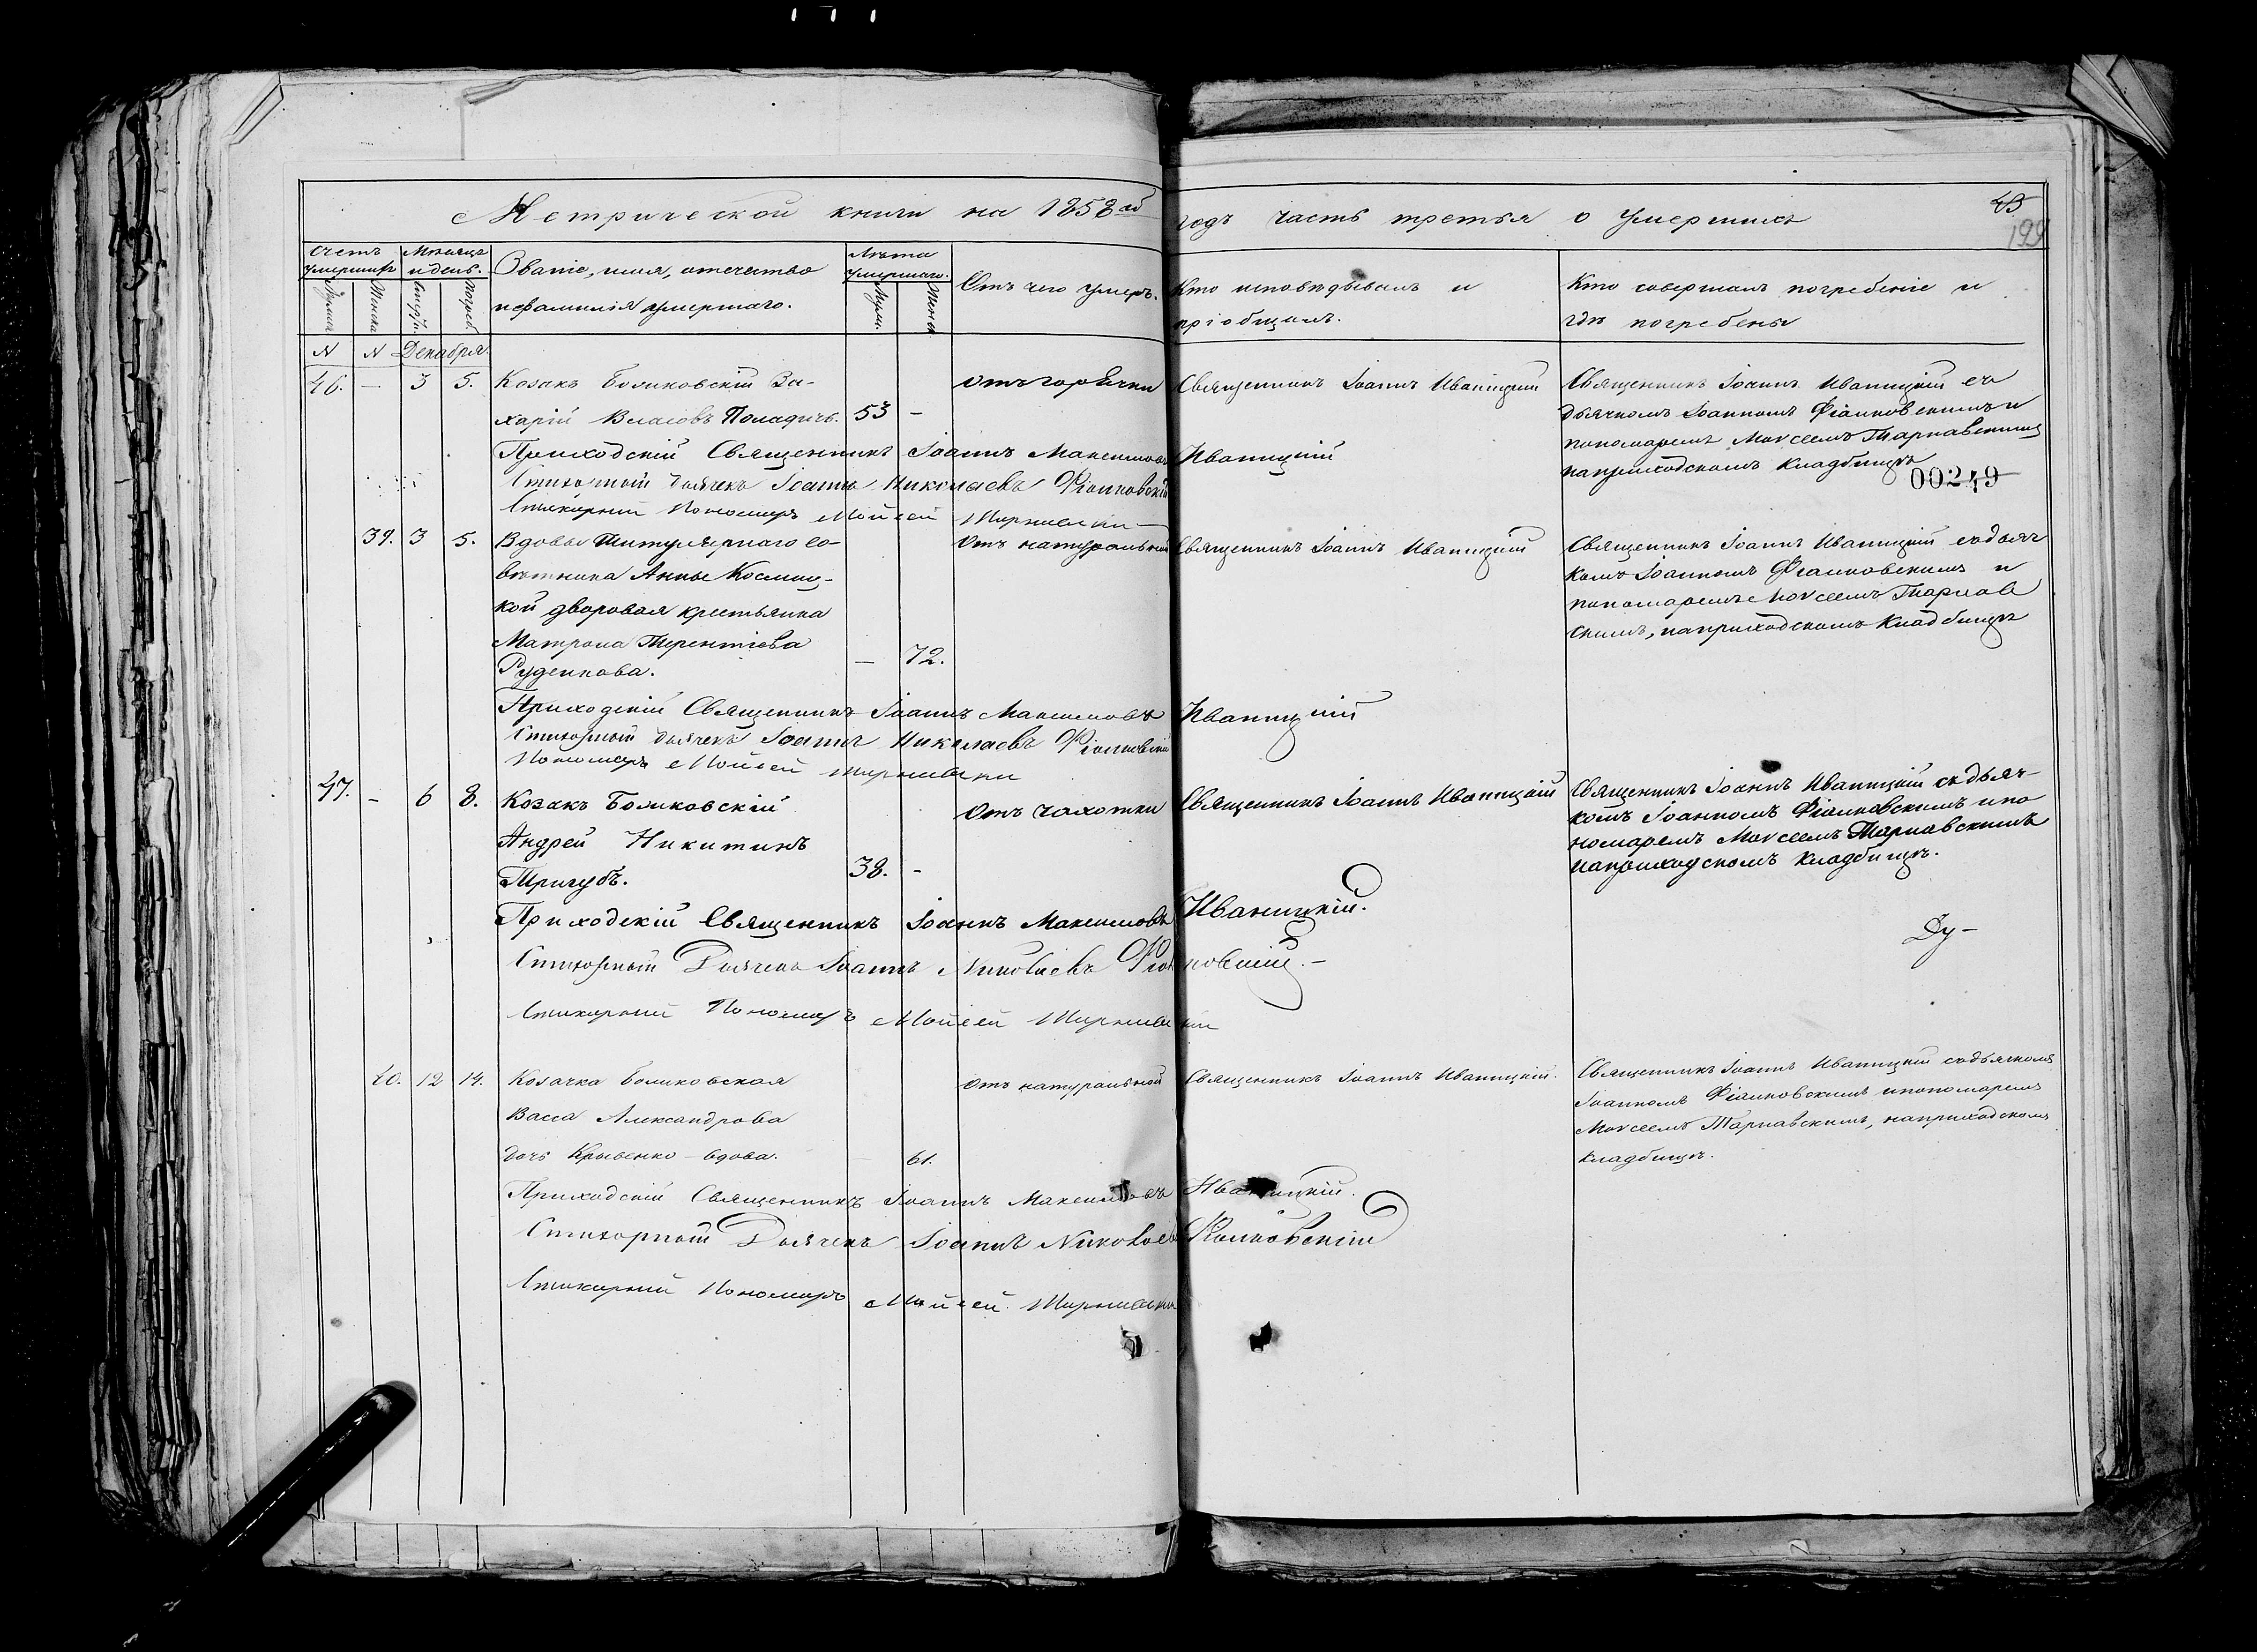 Метрической книги на 1858ой годъ часть третья о умершихъ
43
199
Счетъ умершихъ
Мѣсяцъ и день.
Званіе, имя, отечество
и фамилія умершаго.
Лѣта умершаго.
Отъ чего умеръ.
Кто исповѣдывалъ и
пріобщалъ.
Кто совершалъ погребеніе и
гдѣ погребены
Мужска
Женска
Смерти
Погреб
Муж.
Женск
N N Декабря.
46. — 3 5. Козакъ Боликовскій За-
харій Власовъ Поладичъ. 53 —
отъ горячки
Священникъ Іоаннъ Иваницкій
Священникъ Іоаннъ Иваницкій съ
дьячкомъ Іоанномъ Фіалковскимъ и
пономаремъ Моѵсеемъ Тарнавскимъ
на приходскомъ кладбищѣ
00249
Приходскій Священникъ Іоаннъ Максимовъ Иваницкій
Стихарный дьячекъ Іоаннъ Николаевъ Фіалковскій
Стихарный Пономарь Мойсей Тарнавскій
39. 3 5. Вдовы Титулярнаго со-
вѣтника Анны Косинц-
кой дворовая крестьянка
Матрона Терентіева
Руденкова. — 72.
отъ натуральной
Священникъ Іоаннъ Иваницкій
Священникъ Іоаннъ Иваницкій съ дьяч
комъ Іоанномъ Фіалковскимъ и
пономаремъ Моѵсеемъ Тарнав
скимъ, на приходскомъ кладбищѣ
Приходскій Священникъ Іоаннъ Максимовъ Иваницкій
Стихарный дьячекъ Іоаннъ Николаевъ Фіалковскій
Пономарь Мойсей Тарнавскій
47. — 6 8. Козакъ Боликовскій
Андрей Никитинъ
Тригубъ. 38. —
отъ чахотки
Священникъ Іоаннъ Иваницкій
Священникъ Іоаннъ Иваницкій съ дьяч-
комъ Іоанномъ Фіалковскимъ и по
номаремъ Моѵсеемъ Тарнавскимъ
на приходскомъ кладбищѣ.
Приходскій Священникъ Іоаннъ Максимовъ Иваницкій.
Ду-
Стихарный Дьячекъ Іоаннъ Николаевъ Фіалковскій.—
Стихарный Пономарь Мойсей Тарнавскій
40. 12 14. Козачка Боликовская
Васса Александрова
дочь Крывенко — вдова. 61.
отъ натуральной
Священникъ Іоаннъ Иваницкій.
Священникъ Іоаннъ Иваницкій съ дьячкомъ
Іоанномъ Фіалковскимъ и пономаремъ
Моѵсеемъ Тарнавскимъ, на приходскомъ
кладбищѣ.
Приходскій Священникъ Іоаннъ Максимовъ Иваницкій.
Стихарный Дьячекъ Іоаннъ Николаевъ Фіалковскій
Стихарный Пономарь Мойсей Тарнавскій